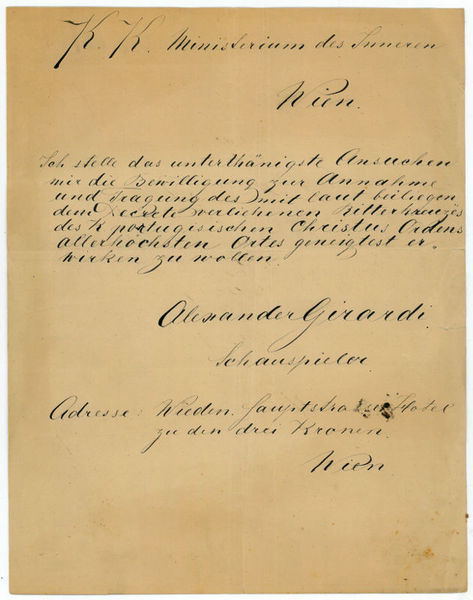 K. K. Ministerium des Inneren
Wien.
Ich stelle das unterthänigste Ansuchen
mir die Bewilligung zur Annahme
und Tragung des mit laut beiliegen
dem Decrete verliehenen Ritterkreuzes
des K portugisischen Christus Ordens
allerhöchsten Ortes geneigtest er
wirken zu wollen.
Alexander Girardi
Schauspieler
Adresse: Wieden. Hauptstrasse Hotel
zu den drei Kronen.
Wien